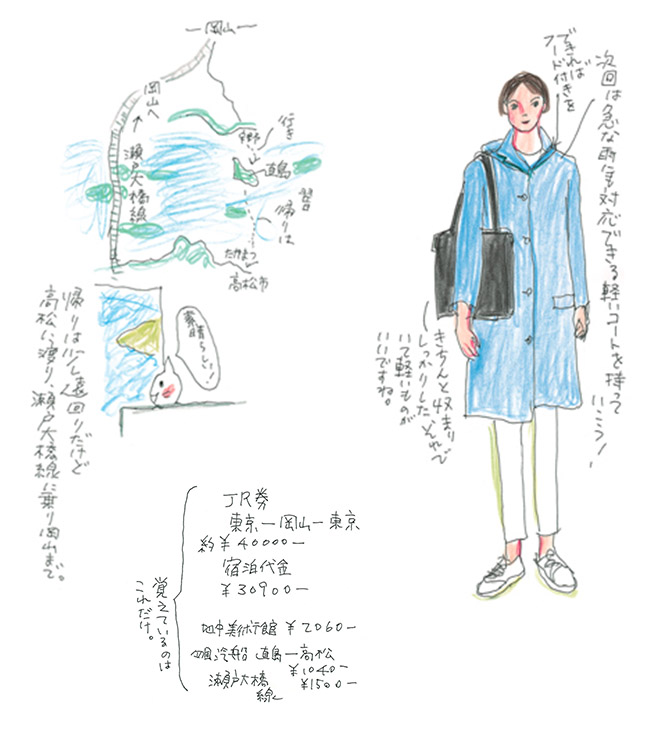 ー岡山ー
岡山へ
↑
瀬戸大橋線
行き
直島
帰りは
たかまつ
高松市
素晴らしい!
帰りは少し遠回りだけど
高松に渡り、瀬戸大橋線に乗り岡山まで。
できれば
フード付きを
次回は急な雨にも対応できる軽いコートを持って
いこう!
きちんと収まり
しっかりした、それで
いて軽いものが
いいですね。
覚えているのは
これだけ。
JR券
東京ー岡山ー東京
約¥40000ー
宿泊代金
¥30900ー
地中美術館 ¥2060ー
四国汽船 直島ー高松
¥1040ー
瀬戸大橋線 ¥1500ー